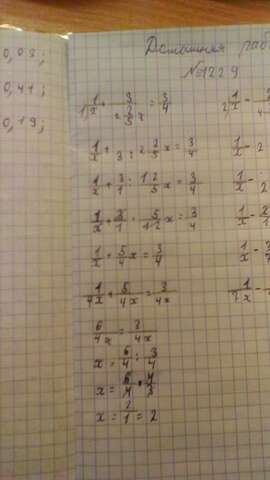 0,03;
0,41;
0,19;
Домашняя раб
№1229
1) 1/x + 3/(2 2/5 x) = 3/4
1/x + 3 : 2 2/5 x = 3/4
1/x + 3/1 : 12/5 x = 3/4
1/x + 3/1 · 5/12 x = 3/4
1/x + 5/4 x = 3/4
1/4x + 5/4x = 3/4x
6/4x = 3/4x
x = 6/4 : 3/4
x = 6/4 · 4/3
x = 2/1 = 2
2) 1/x -
1/x - 2
1/x -
1/x - 2/1
1/x - 3/7
1/7x -